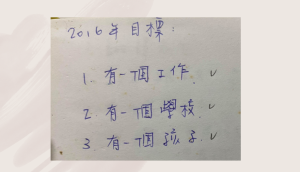 2016年目標:
1. 有一個工作 ✓
2. 有一個學校 ✓
3. 有一個孩子 ✓